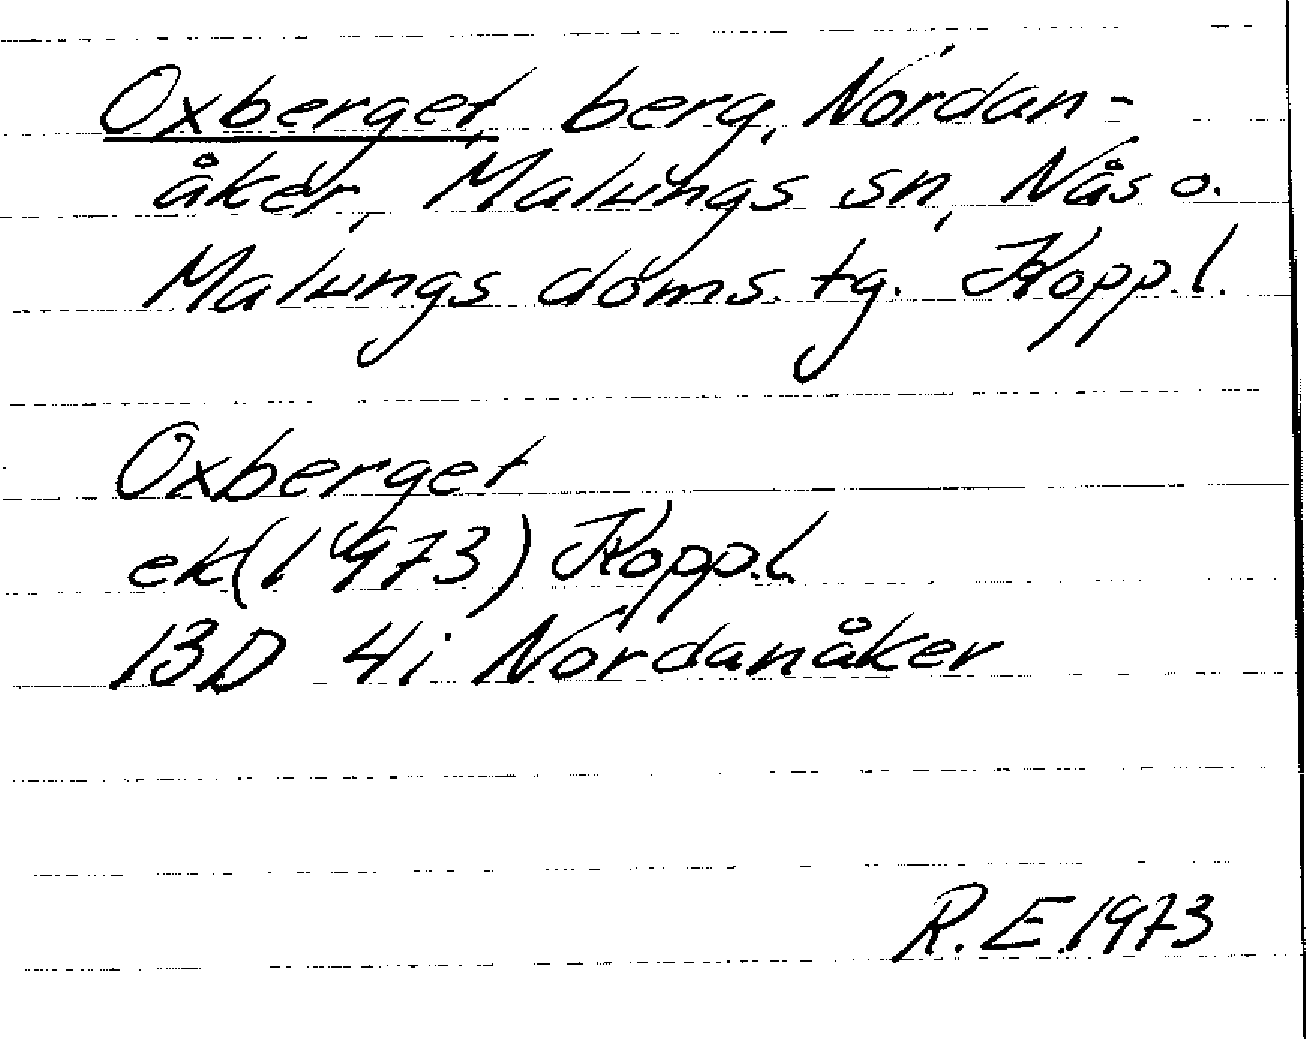 Oxberget, berg, Nordan-
åker, Malungs sn, Nås o.
Malungs doms. tg. Kopp.l.
Oxberget
ek(1973) Kopp.l.
13D 4i Nordanåker
R.E.1973